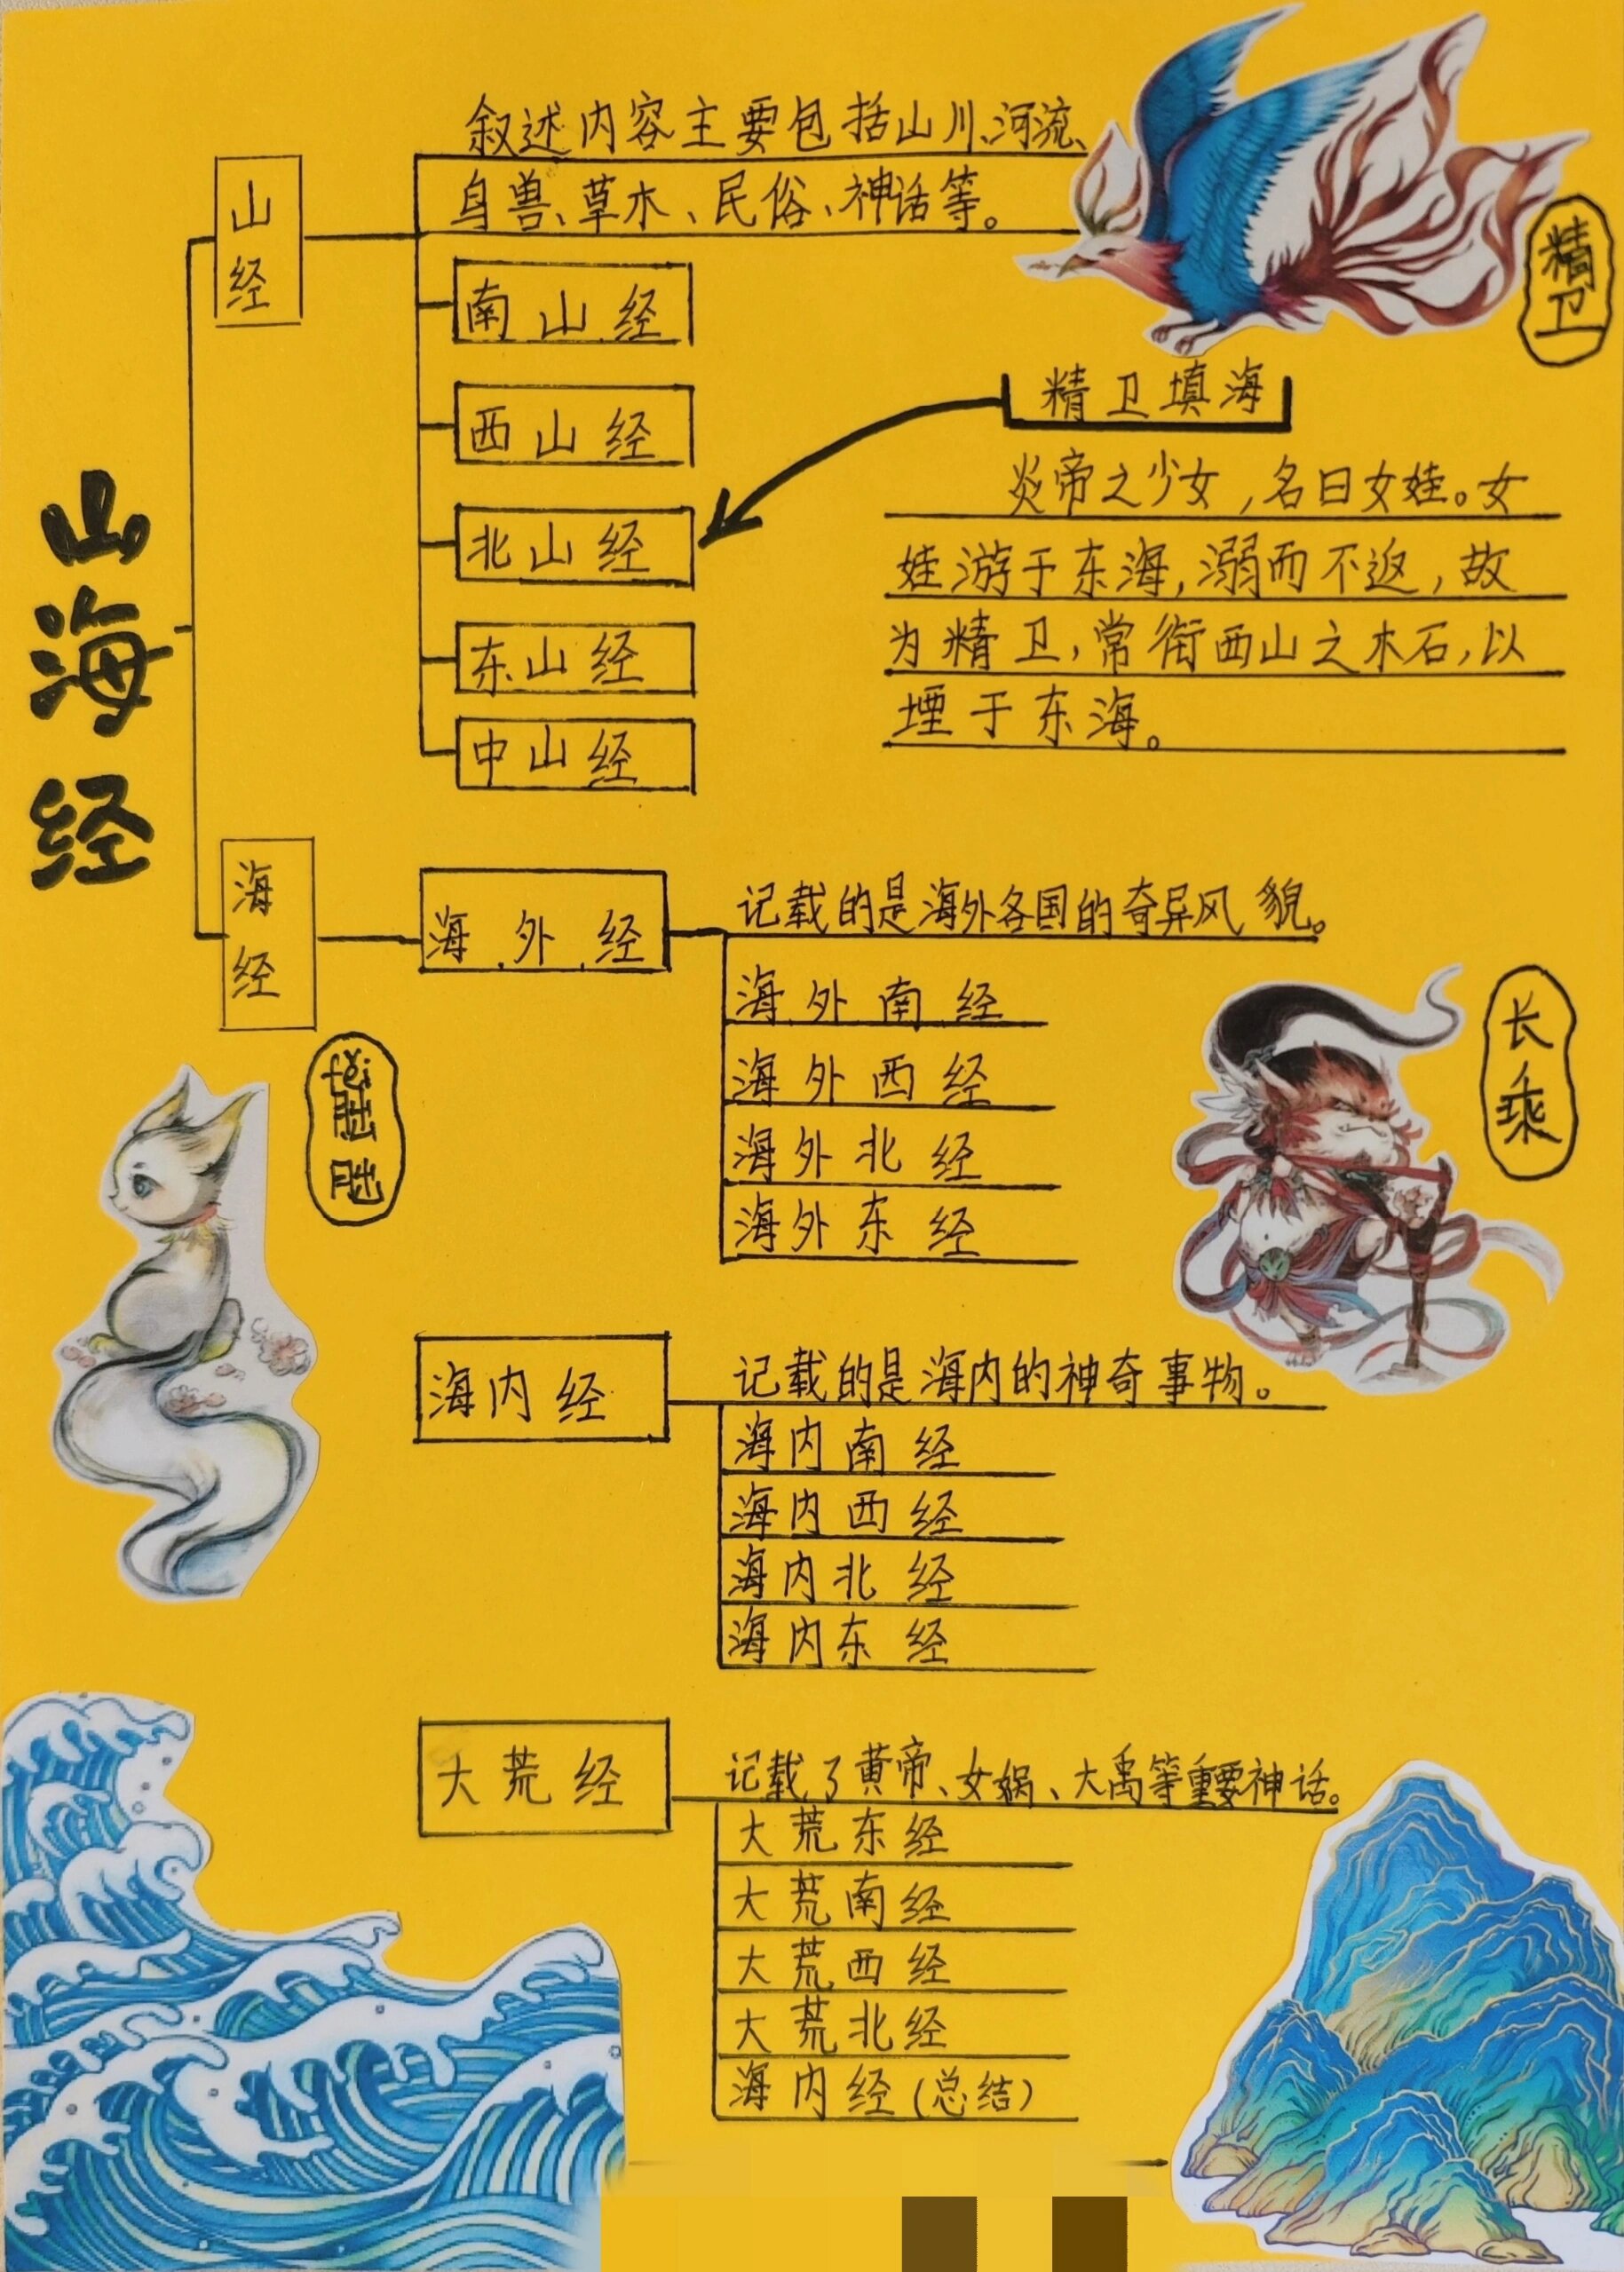 山海经
山经
叙述内容主要包括山川、河流、
鸟兽、草木、民俗、神话等。
南山经
西山经
北山经
东山经
中山经
精卫
精卫填海
炎帝之少女，名曰女娃。女
娃游于东海，溺而不返，故
为精卫，常衔西山之木石，以
堙于东海。
海经
海外经
记载的是海外各国的奇异风貌。
海外南经
海外西经
海外北经
海外东经
长乘
朏朏
海内经
记载的是海内的神奇事物。
海内南经
海内西经
海内北经
海内东经
大荒经
记载了黄帝、女娲、大禹等重要神话。
大荒东经
大荒南经
大荒西经
大荒北经
海内经(总结)